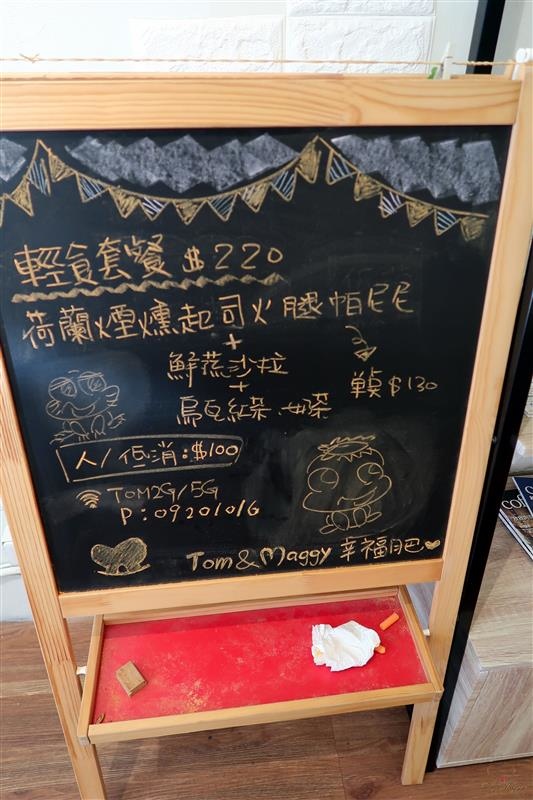 輕食套餐 $220
荷蘭煙燻起司火腿帕尼尼
+
鮮蔬沙拉
單點 $130
+
烏瓦紅茶.奶茶
人/低消:$100
TOM2G/5G
P:09201016
Tom&Maggy 幸福肥